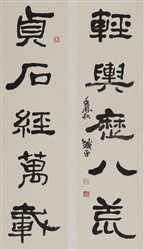 輕輿歷八荒
貞石經萬載